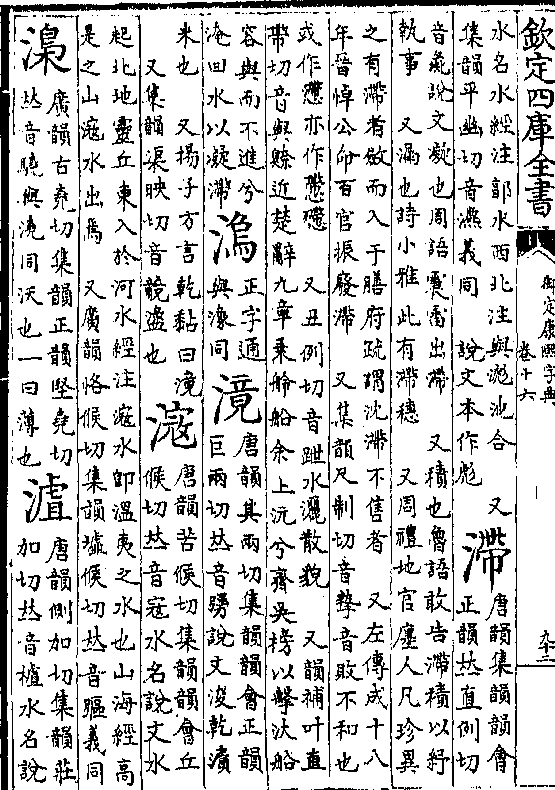 欽定四庫全書
御定康熙字典
卷十六
九十三
水名水經注鄗水西北注與滮池合　又
集韻平幽切音淲義同　說文本作彪
滯
唐韻集韻韻會
正韻𠀤直例切
音彘說文凝也周語震雷出滯　又積也魯語敢告滯積以紓
執事　又漏也詩小雅此有滯穗　又周禮地官廛人凡珍異
之有滯者斂而入于膳府疏謂沈滯不售者　又左傳成十八
年晉悼公卽百官振廢滯　又集韻尺制切音掣音敗不和也
或作懘亦作　又丑例切音跇水灑散貌　又韻補叶直
帶切音與賒近楚辭九章乘舲船余上沅兮齊吳榜以擊汰船
容與而不進兮
淹回水以凝滯
正字通
與同
滰
唐韻其兩切集韻韻會正韻
巨兩切𠀤音勥說文浚乾漬
米也　又揚子方言乾黏曰滰
又集韻渠映切音競盝也
滱
唐韻苦候切集韻韻會丘
候切𠀤音寇水名說文水
起北地靈丘東入於河水經注滱水卽溫夷之水也山海經高
是之山滱水出焉　又廣韻恪候切集韻墟侯切𠀤音彄義同
廣韻古堯切集韻正韻堅堯切
𠀤音驍與澆同沃也一曰薄也
唐韻側加切集韻莊
加切𠀤音樝水名說